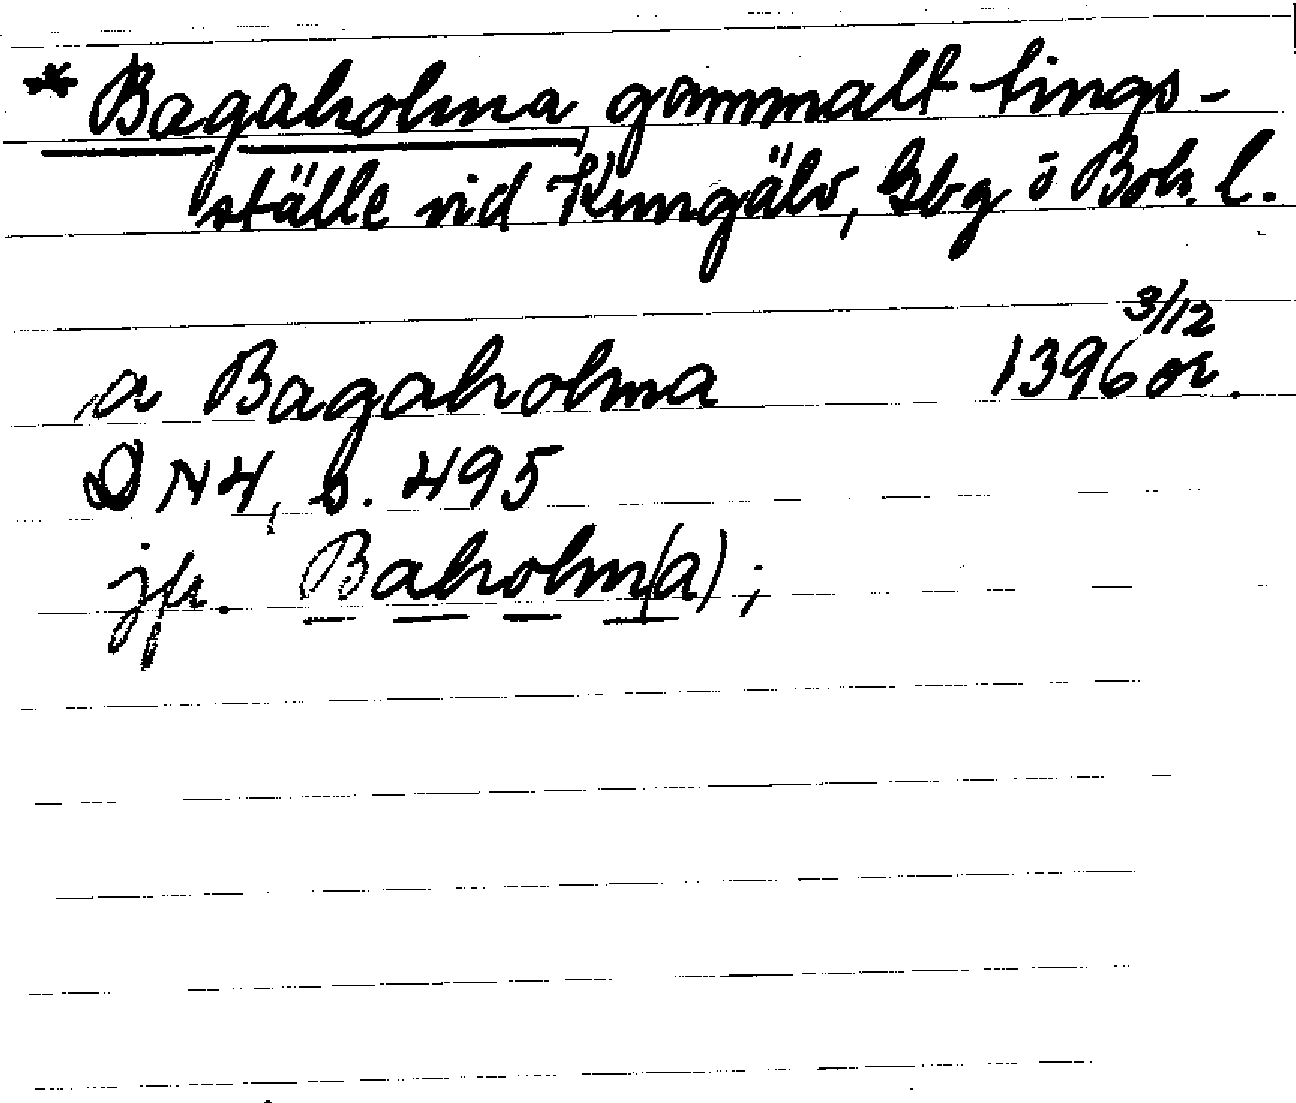 * Bagaholma, gammalt tings-
ställe vid Kungälv, Gbg o Boh. l.
a Bagaholma 1396 3/12 or.
DN 4, s. 495
jfr. Baholm(a);